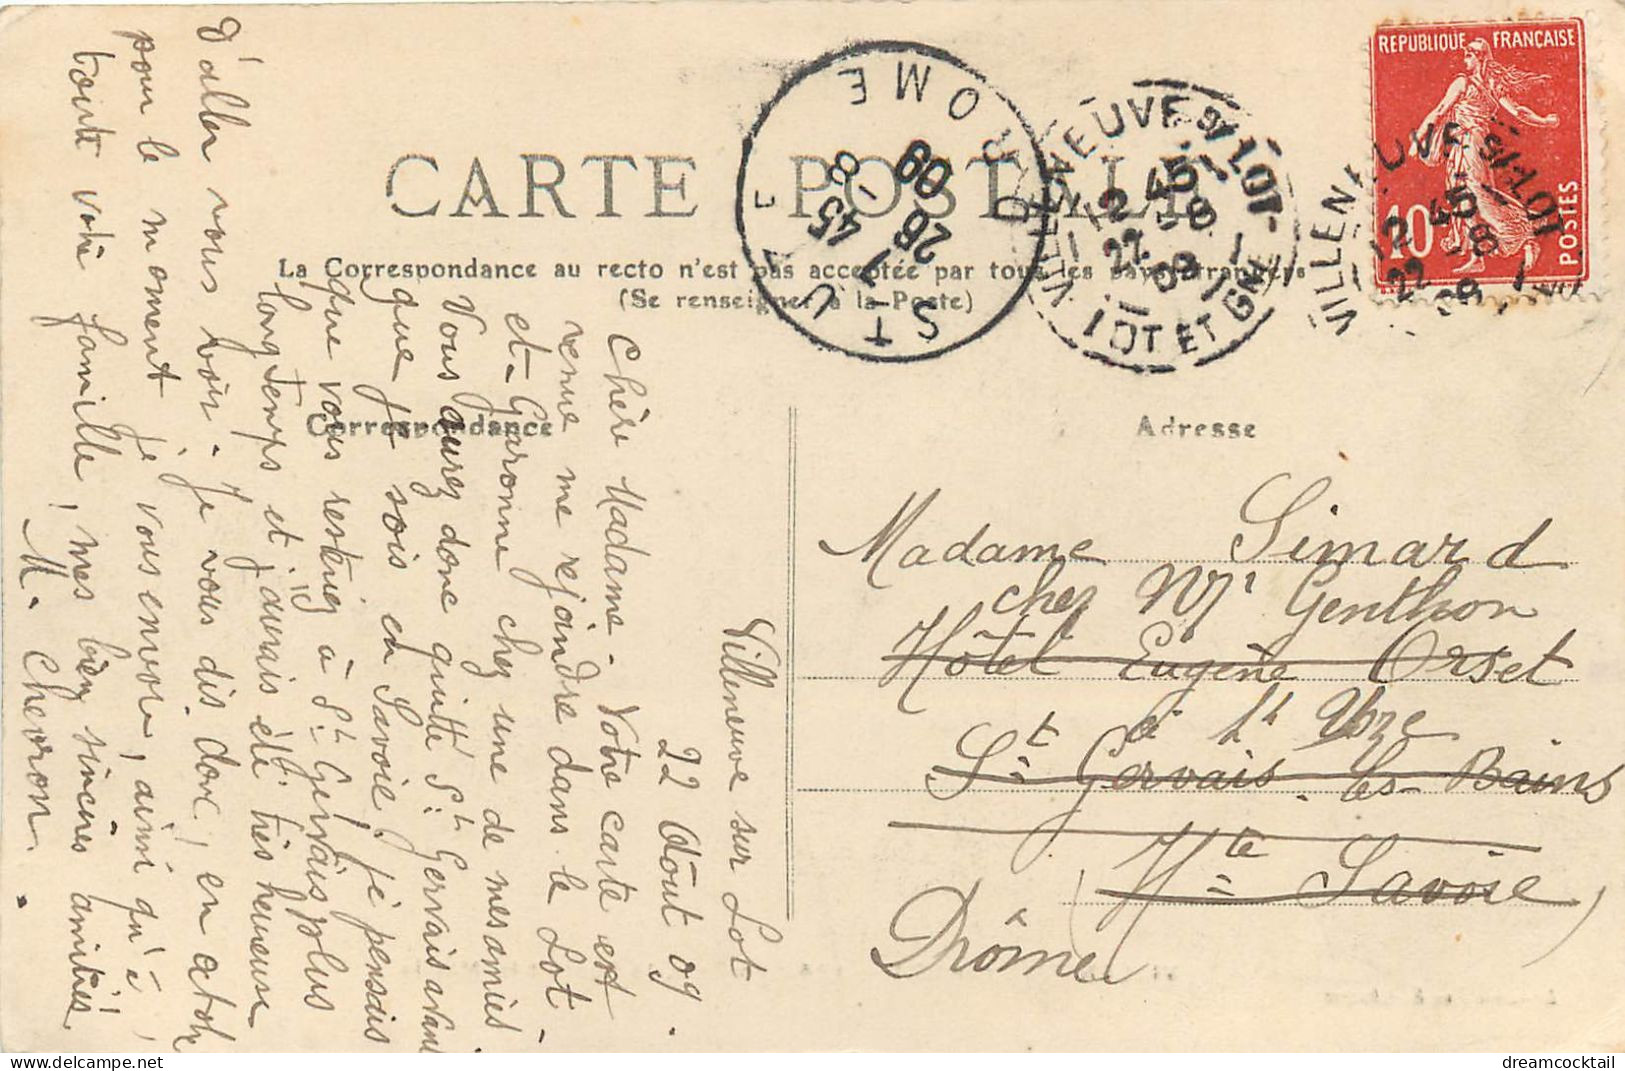 CARTE POSTALE
La Correspondance au recto n'est pas acceptée par tous les pays étrangers
(Se renseigner à la Poste)
Correspondance
Adresse
RÉPUBLIQUE FRANÇAISE
10
POSTES
VILLENEUVE S/ LOT
12 45
22 -8
09
LOT ET GNE
VILLENEUVE S/ LOT
12 45
22 -8
09
ST UZE
DROME
8 45
26 -8
09
Villeneuve sur Lot
22 Août 09.
Chère Madame - Votre carte est
venue me rejoindre dans le Lot-
et-Garonne chez une de mes amies.
Vous aurez donc quitté St Gervais avant
que je sois en Savoie, je pensais
que vous resteriez à St Gervais plus
longtemps et j'aurais été très heureuse
d'aller vous voir. Je vous dis donc, en attt
pour le moment je vous envoie, ainsi qu'à
toute votre famille, mes bien sincères amitiés.
M. Chevron.
Madame Simard
chez Mr Genthon
Hôtel Eugène Orset
à St Uze
St Gervais-les-Bains
Hte Savoie
Drôme
dreamcocktail